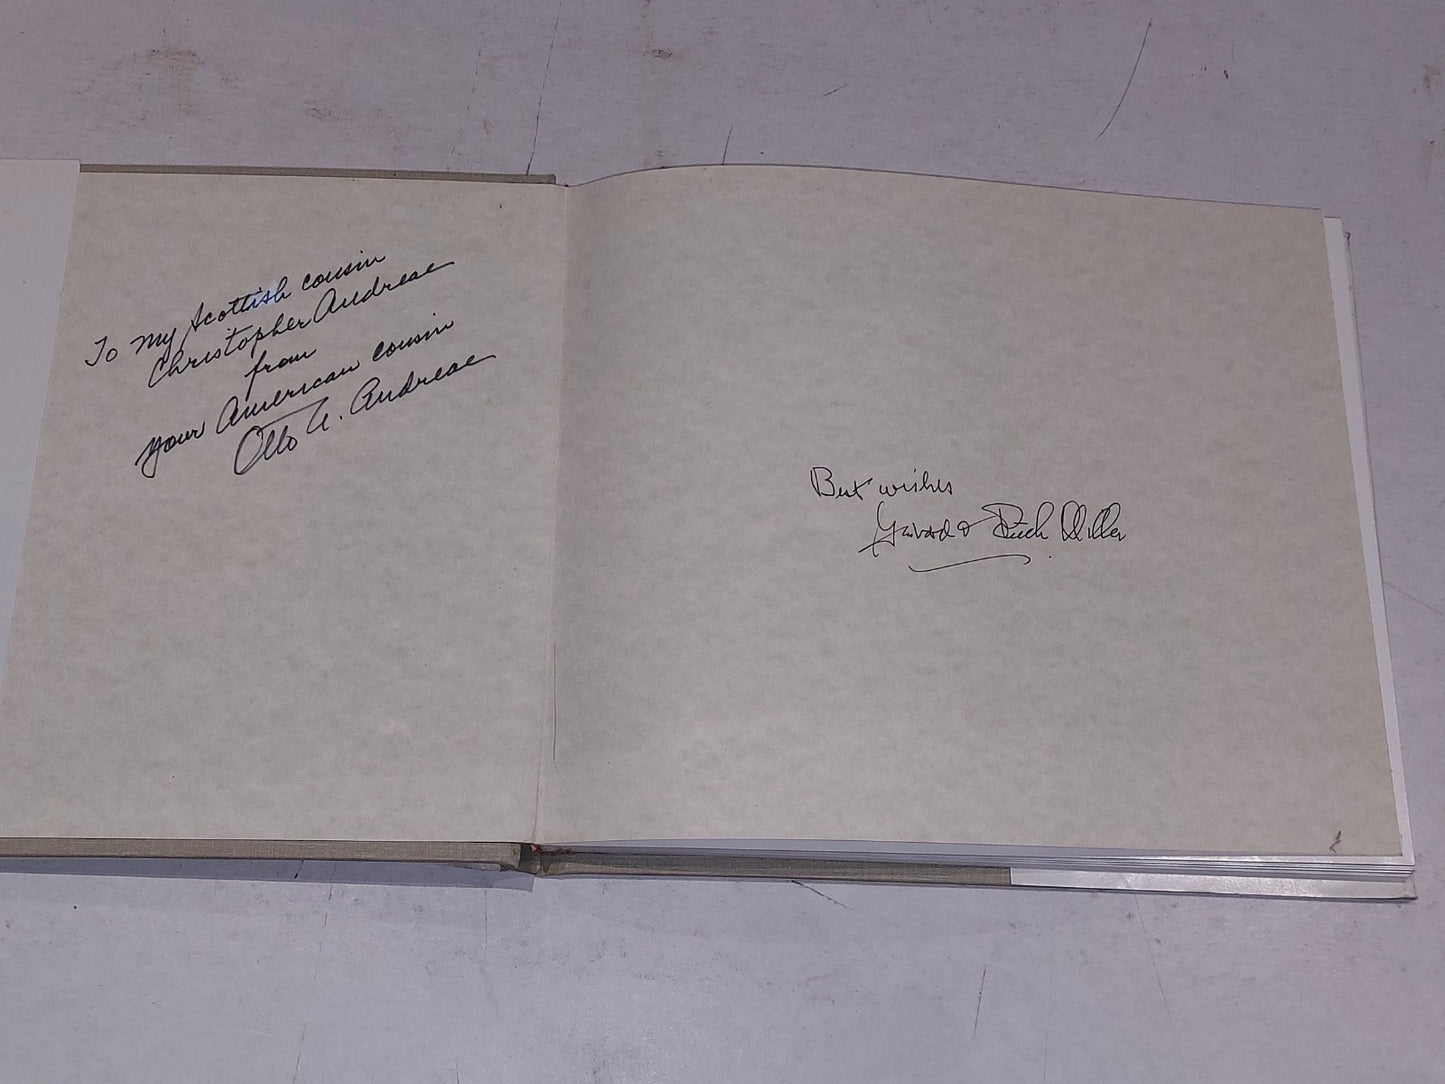 To my Scottish cousin
Christopher Andreae
from
your American cousin
Otto A. Andreae
Best wishes
& Ruth Miller